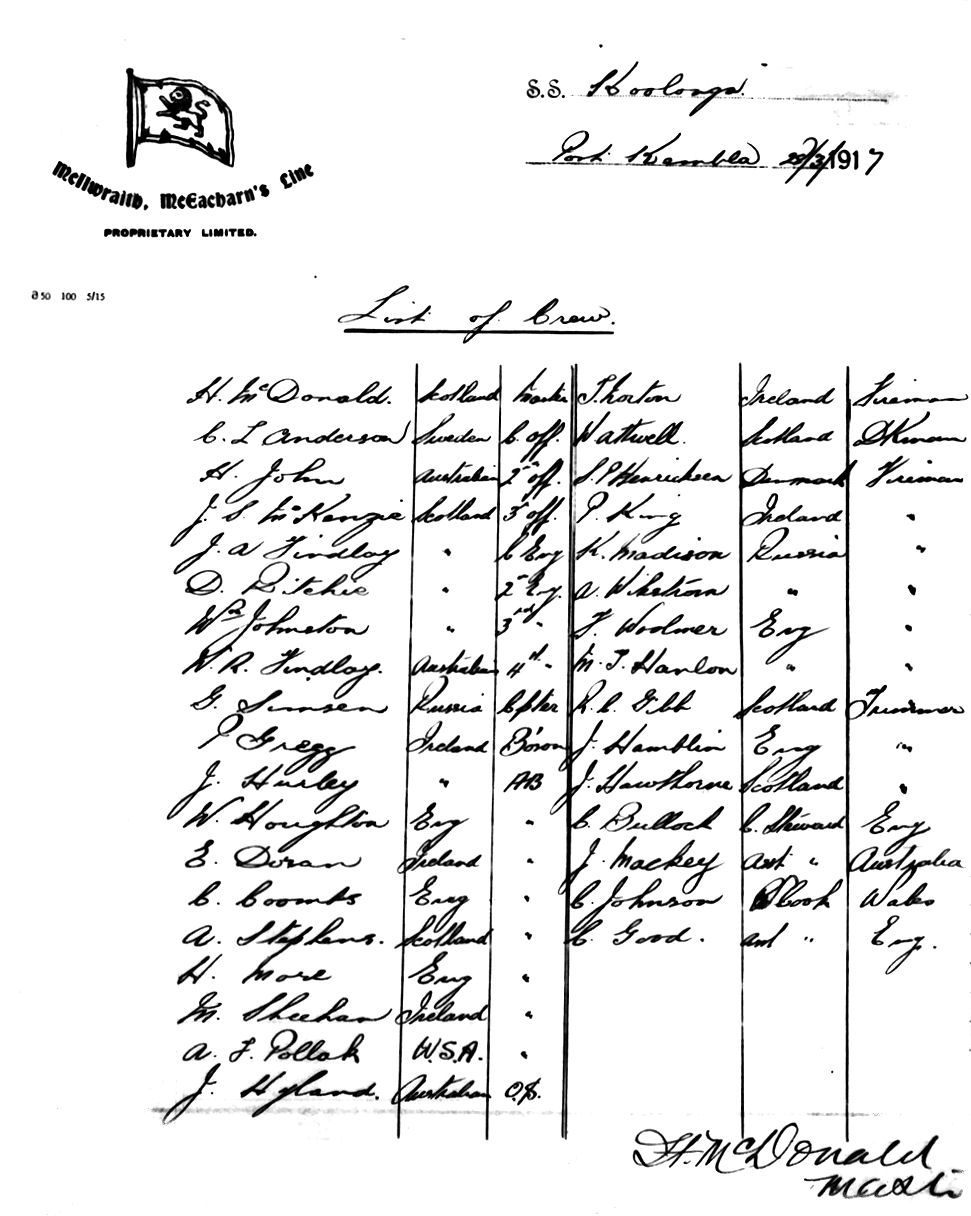 S.S. Koolonga.
Port Kembla 29/3/1917
McIlwraith, McEacharn's Line
PROPRIETARY LIMITED.
a 50 100 5/15
List of Crew.
H. McDonald. Scotland Master T. Norton Ireland Fireman
C. L Anderson Sweden C. off. Hattwell. Scotland DKman
H. John Australian 2nd off. S. P Henricksen Denmark Fireman
J. S. McKenzie Scotland 3rd off. P. King Ireland "
J. A Findlay " C Eng K. Madison Russia "
D. Ritchie " 2nd Eng. A. Wikstrom " "
Wm Johnston " 3rd " F. Woolmer Eng "
W. R. Findlay. Australian 4th " M. T. Hanlon " "
G. Simsen Russia Cpter R. C. Gibb Scotland Trimmer
P Gregg Ireland Bosn J. Hamblin Eng "
J. Hurley " AB J. Hawthorne Scotland "
W. Houghton Eng " C. Bullock C. Steward Eng
E. Doran Ireland " J. Mackey asst " Australia
C. Coombs Eng " C. Johnson Cook Wales
A. Stephens. Scotland " C. Good. asst " Eng.
H. More Eng "
M. Sheehan Ireland "
A. F. Pollak U.S.A. "
J. Hyland. Australian O.S.
H. McDonald
Master